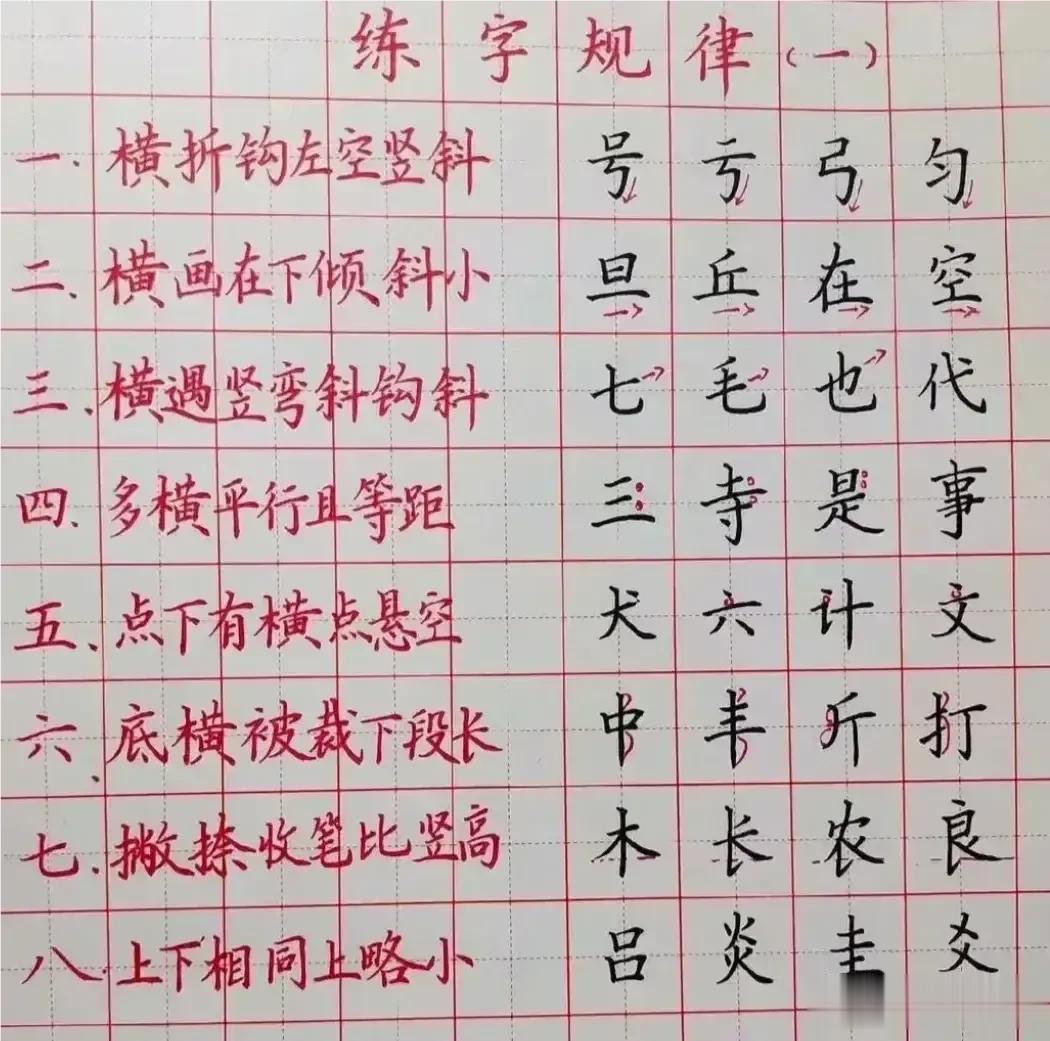 练字规律(一)
一.横折钩左空竖斜 号 亏 弓 匀
二、横画在下倾斜小 旦 丘 在 空
三.横遇竖弯斜钩斜 七 毛 也 代
四.多横平行且等距 三 寺 是 事
五、点下有横点悬空 犬 六 计 文
六.底横被裁下段长 中 丰 斤 打
七.撇捺收笔比竖高 木 长 农 良
八.上下相同上略小 吕 炎 圭 爻